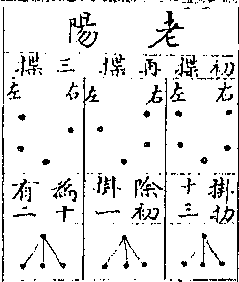 老陽
初揲
再揲
三揲
右 左
右 左
右 左
掛扐
十三
除初
掛一
為十
有二